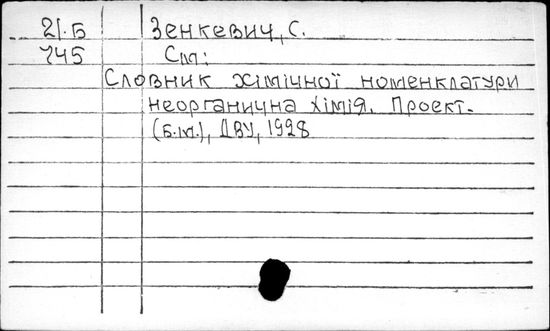 21.Б Зенкевич, С.
745 См:
Словник хімічної номенклатури
неорганична хімія. Проект.
(Б.м.), ДВУ, 1928